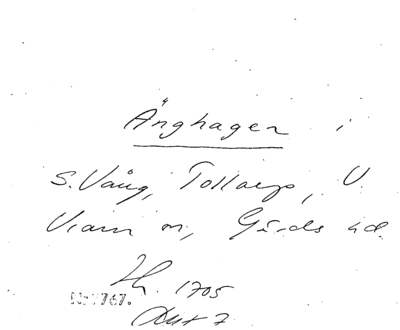 Änghagen i
S. Vång, Tollarp, V.
Vram sn, Gärds hd.
Lh. 1705
Nr 7767.
Akt 7